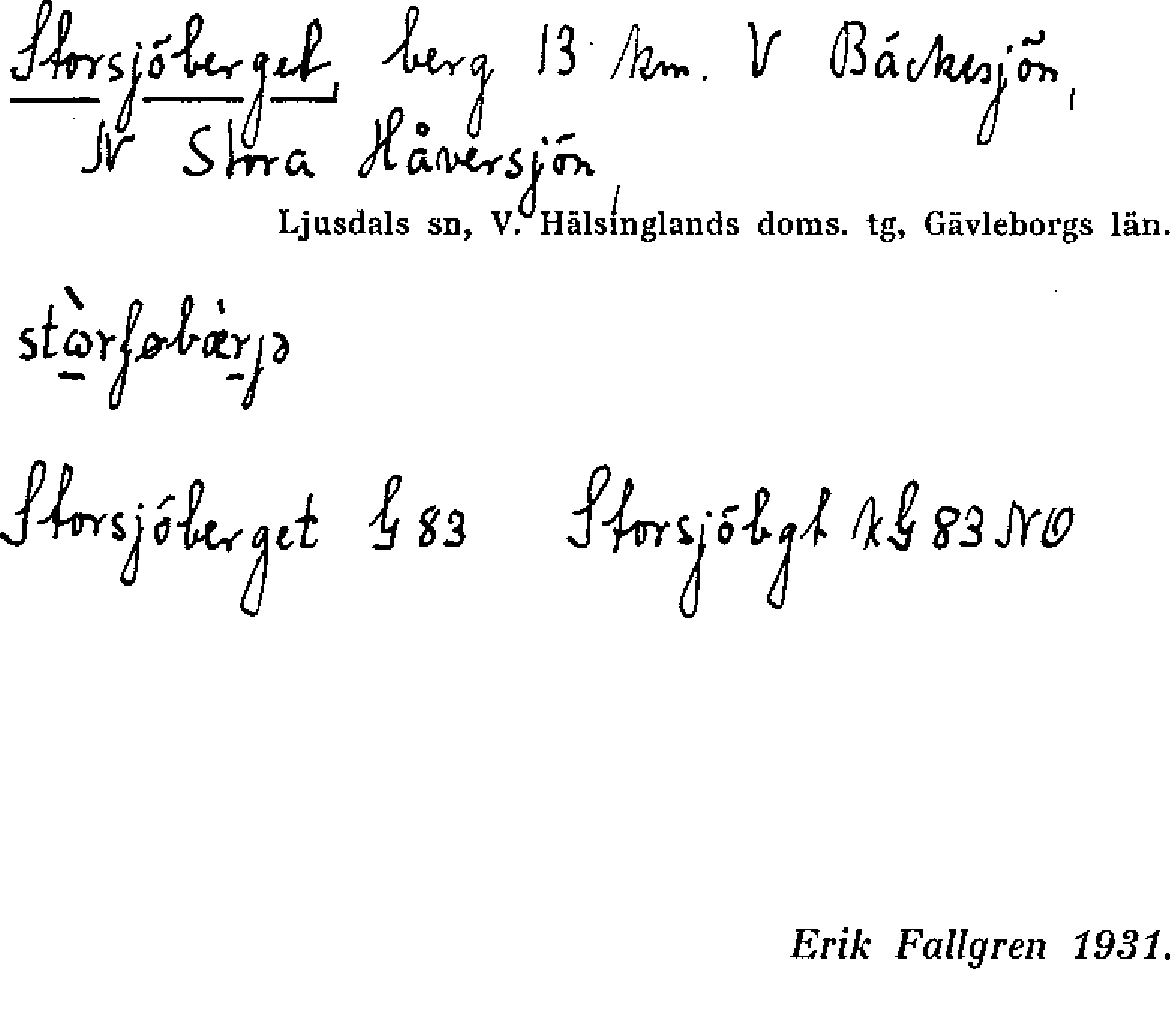 Storsjöberget, berg 13 km. V Bäckesjön,
N Stora Håversjön,
Ljusdals sn, V. Hälsinglands doms. tg, Gävleborgs län.
Storsjöberget G 83 Storsjöbgt kG 83 NO
Erik Fallgren 1931.